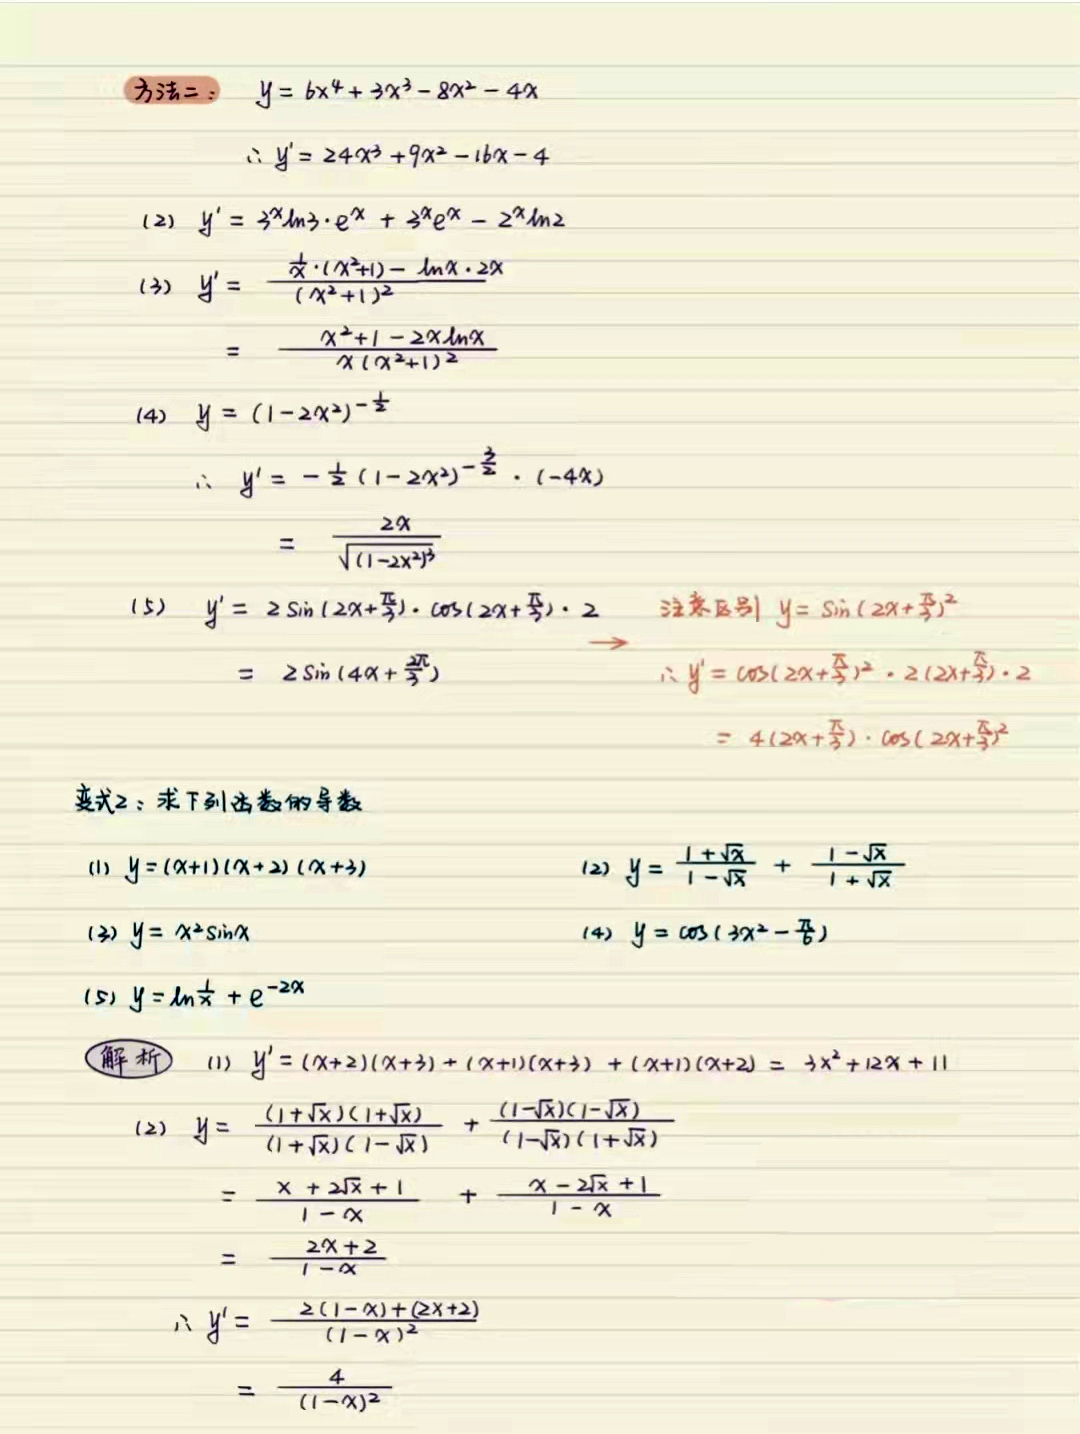 方法二： y = 6x⁴ + 3x³ - 8x² - 4x
∴ y' = 24x³ + 9x² - 16x - 4
(2) y' = 3ˣln3·eˣ + 3ˣeˣ - 2ˣln2
(3) y' = \frac{\frac{1}{x}·(x²+1) - lnx·2x}{(x²+1)²}
= \frac{x²+1-2xlnx}{x(x²+1)²}
(4) y = (1-2x²)^{-\frac{1}{2}}
∴ y' = -\frac{1}{2}(1-2x²)^{-\frac{3}{2}}·(-4x)
= \frac{2x}{\sqrt{(1-2x²)³}}
(5) y' = 2sin(2x+\frac{π}{3})·cos(2x+\frac{π}{3})·2 → 注意区别 y = sin(2x+\frac{π}{3})²
= 2sin(4x+\frac{2π}{3}) ∴ y' = cos(2x+\frac{π}{3})²·2(2x+\frac{π}{3})·2
= 4(2x+\frac{π}{3})·cos(2x+\frac{π}{3})²
变式2：求下列函数的导数
(1) y = (x+1)(x+2)(x+3) (2) y = \frac{1+\sqrt{x}}{1-\sqrt{x}} + \frac{1-\sqrt{x}}{1+\sqrt{x}}
(3) y = x²sinx (4) y = cos(3x²-\frac{π}{6})
(5) y = ln\frac{1}{x} + e^{-2x}
解析 (1) y' = (x+2)(x+3) + (x+1)(x+3) + (x+1)(x+2) = 3x²+12x+11
(2) y = \frac{(1+\sqrt{x})(1+\sqrt{x})}{(1+\sqrt{x})(1-\sqrt{x})} + \frac{(1-\sqrt{x})(1-\sqrt{x})}{(1-\sqrt{x})(1+\sqrt{x})}
= \frac{x+2\sqrt{x}+1}{1-x} + \frac{x-2\sqrt{x}+1}{1-x}
= \frac{2x+2}{1-x}
∴ y' = \frac{2(1-x)+(2x+2)}{(1-x)²}
= \frac{4}{(1-x)²}